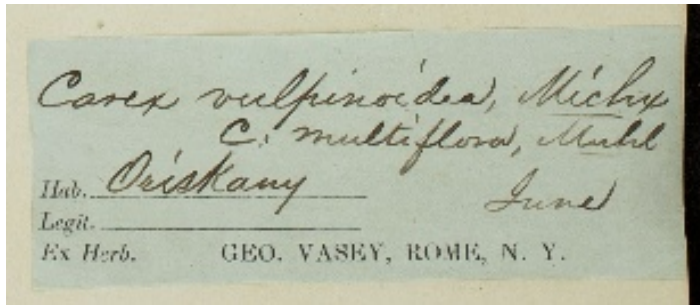 Carex vulpinoidea, Michx
C. multiflora, Muhl
Hab. Oriskany June
Legit.
Ex Herb. GEO. VASEY, ROME, N. Y.